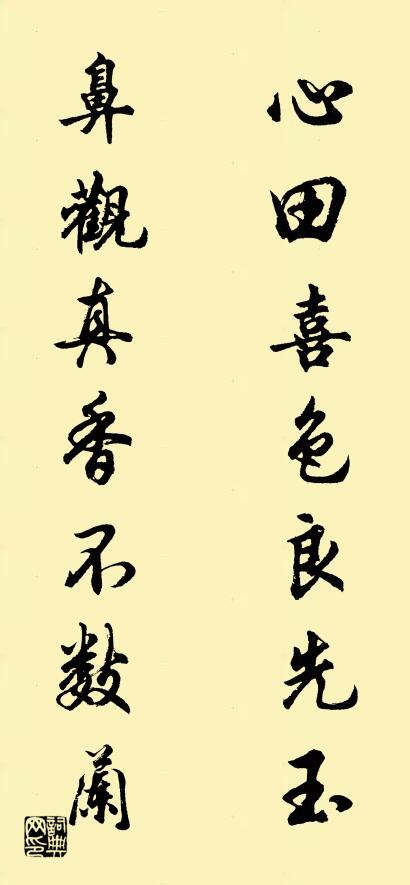 心田喜色良先玉
鼻觀真香不数蘭
詞典网印